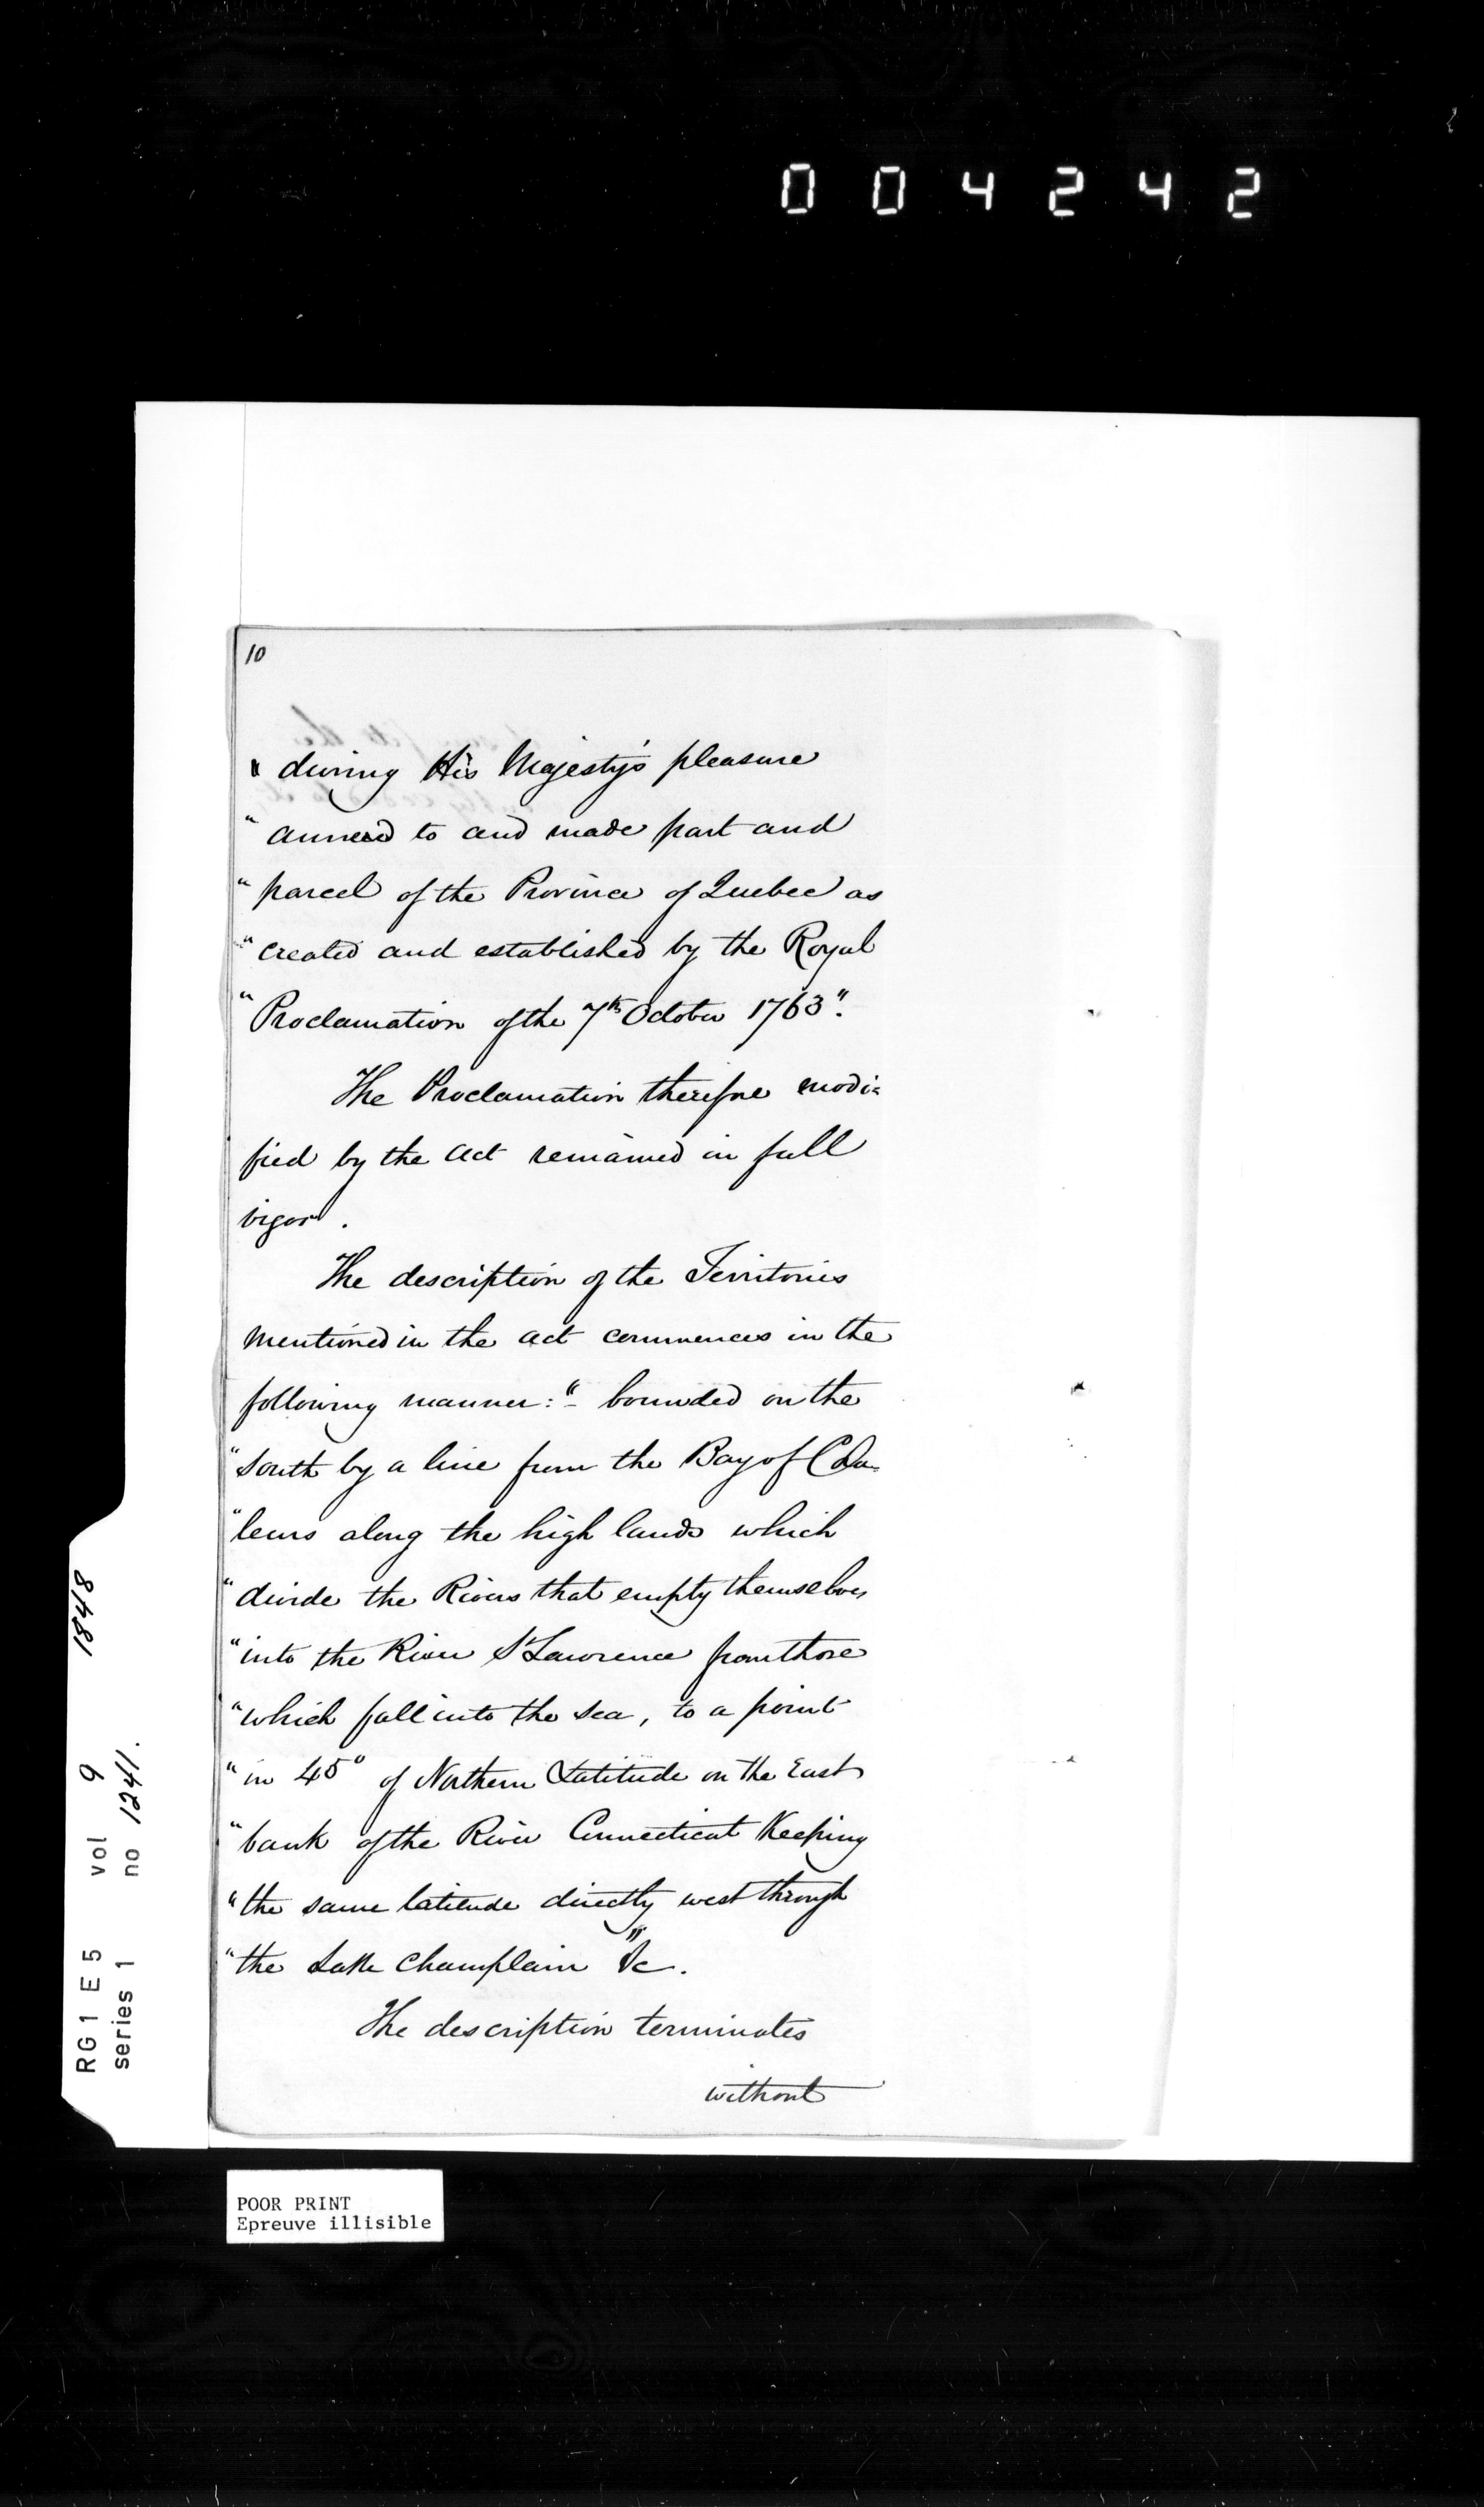 004242
10
" during His Majesty's pleasure
" annexed to and made part and
" parcel of the Province of Quebec as
" created and established by the Royal
" Proclamation of the 7th October 1763".
The Proclamation therefore modi=
fied by the act remained in full
vigor.
The description of the Territories
mentioned in the act commences in the
following manner: "- bounded on the
" South by a line from the Bay of Cha=
" leurs along the high lands which
" divide the Rivers that empty themselves
" into the River St Lawrence from those
" which fall into the sea, to a point
" in 45° of Northern Latitude on the East
" bank of the River Connecticut Keeping
" the same latitude directly west through
" the Lake Champlain" &c.
The description terminates
without
RG 1 E 5 vol 9 1848
series 1 no 1241.
POOR PRINT
Epreuve illisible